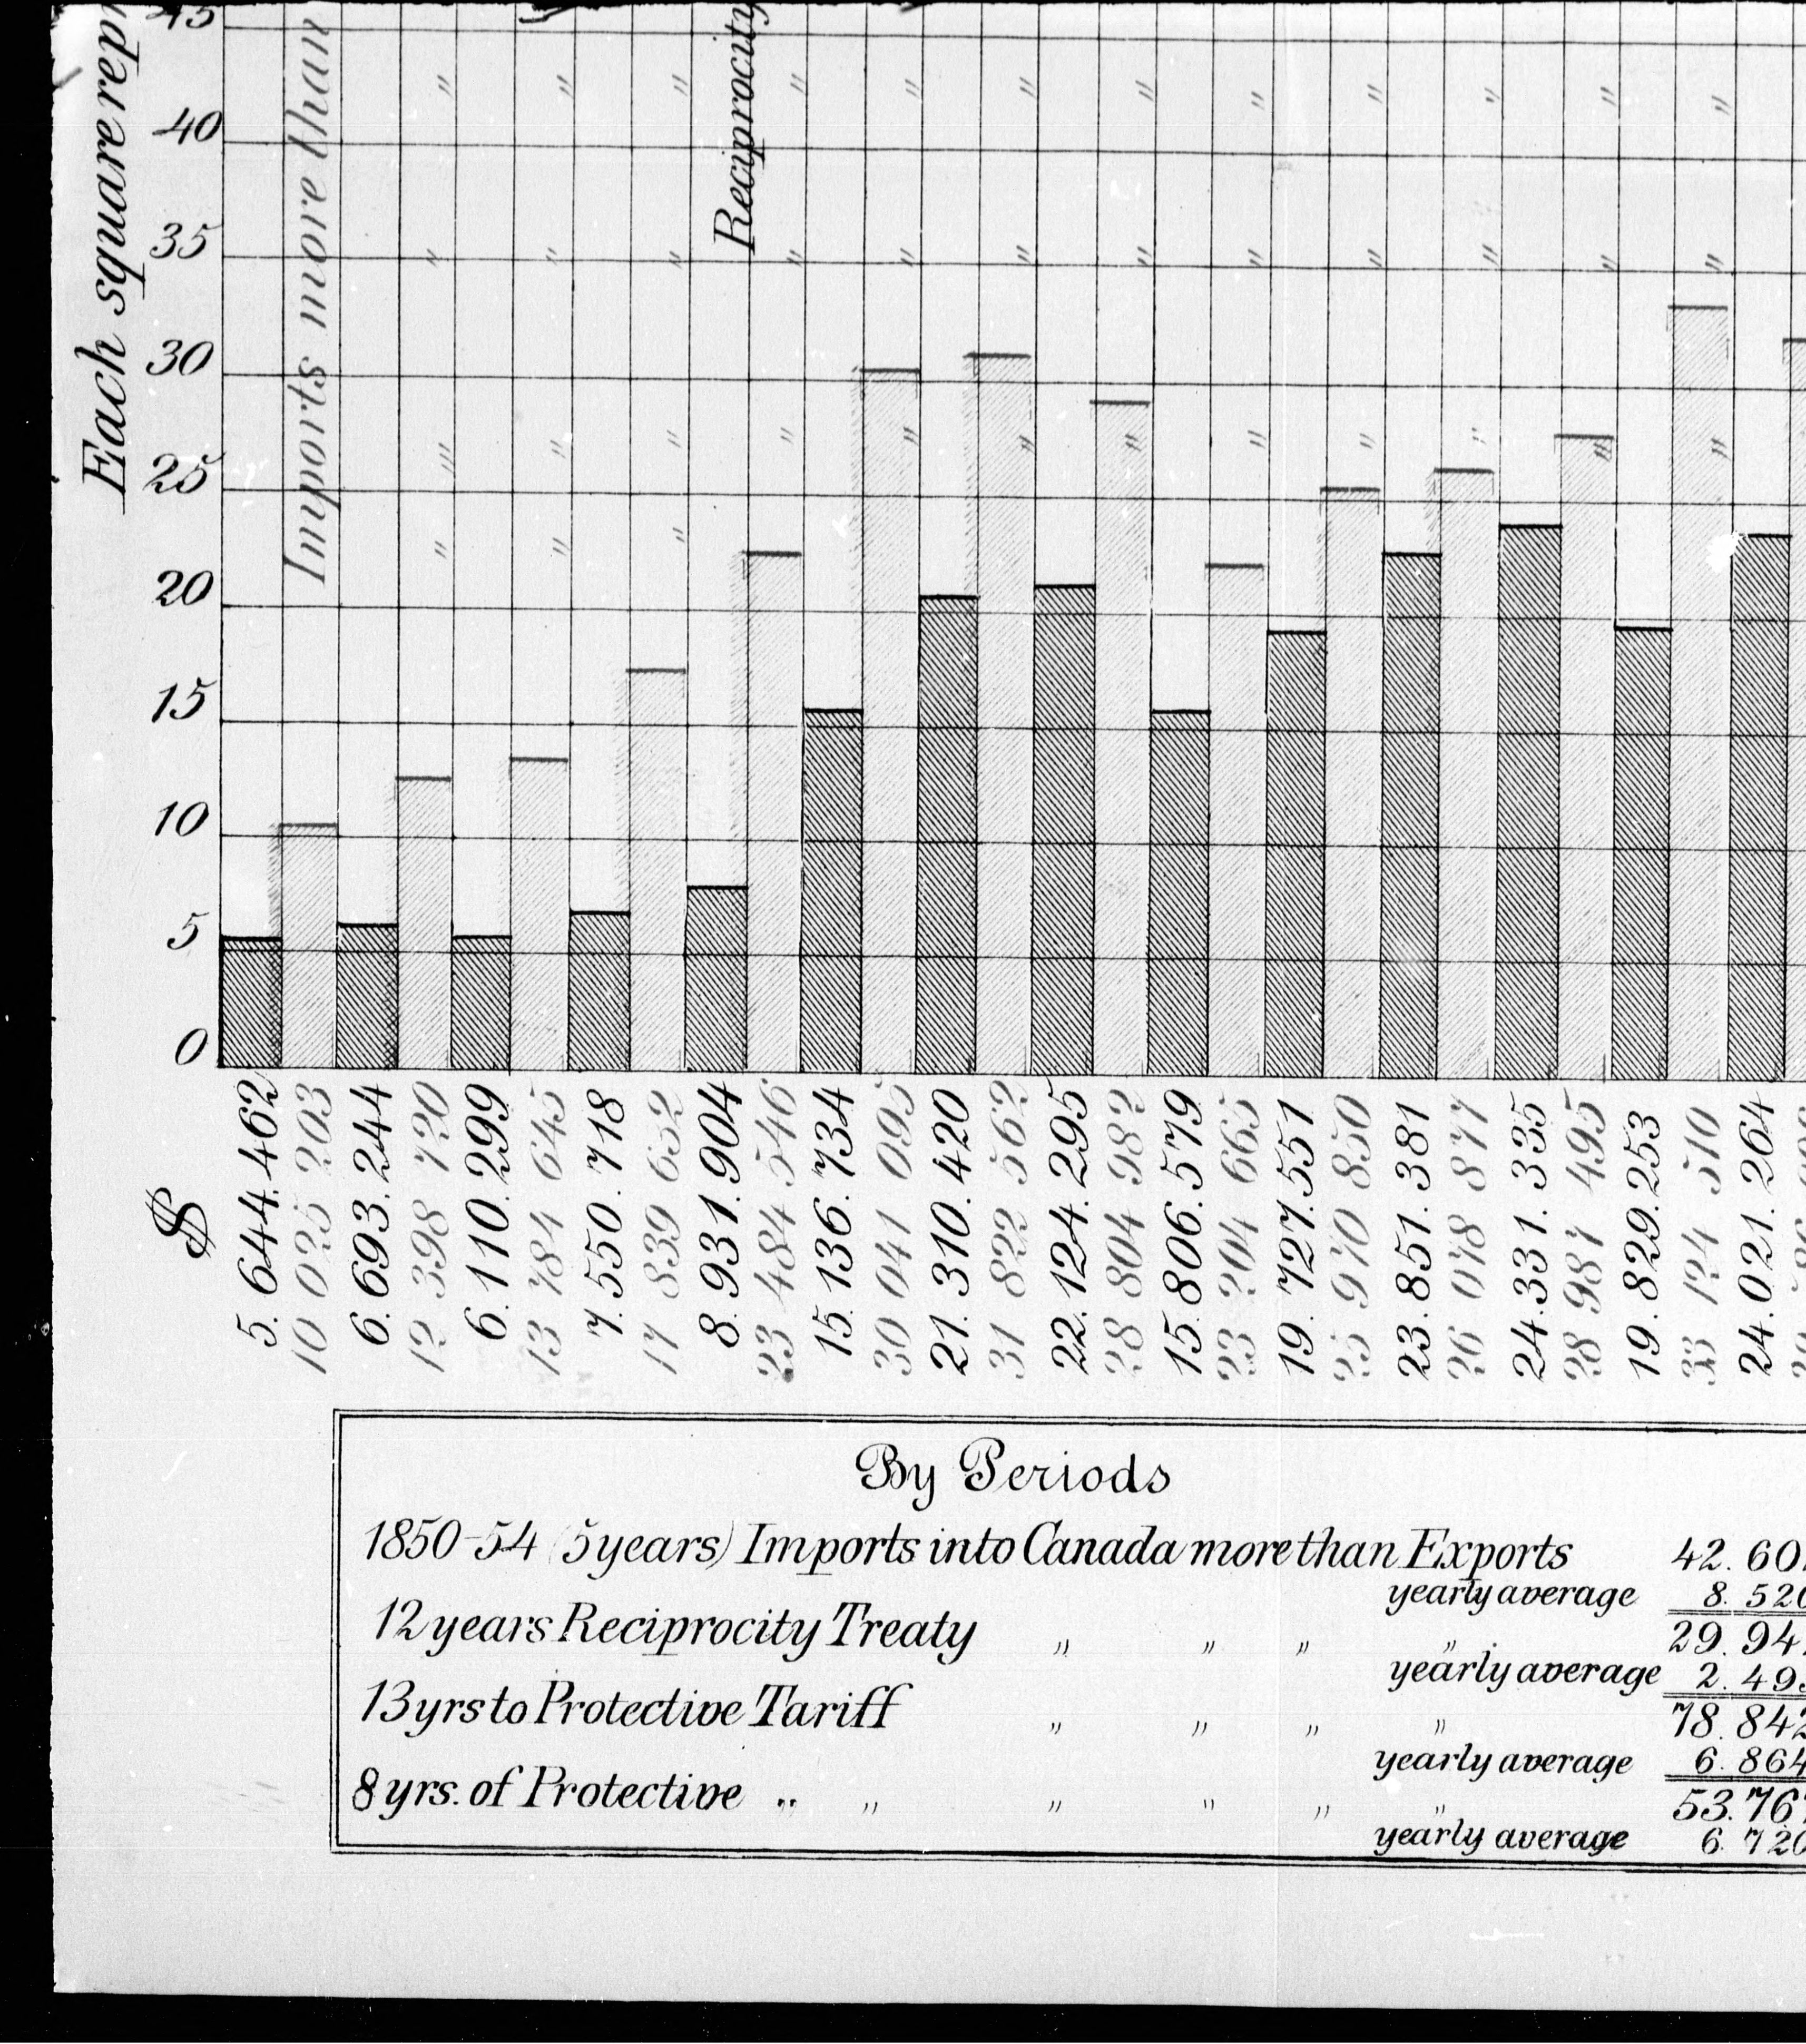 Each square
Imports more than
Reciprocity
45
40
35
30
25
20
15
10
5
0
$
5.644.462
10 025 203
6.693.244
12 398 720
6.110.299
13 784 645
7.550.718
17 839 652
8.931.904
23 484 546
15.136.734
30 041 095
21.310.420
31 822 562
22.124.295
28 804 982
15.806.579
23 204 665
19.727.551
25 970 850
23.851.381
26 078 877
24.331.335
28 987 495
19.829.253
33 124 510
24.021.264
By Periods
1850-54 (5 years) Imports into Canada more than Exports 42.60
yearly average 8.52
12 years Reciprocity Treaty „ „ „ „ 29.94
yearly average 2.49
13 yrs to Protective Tariff „ „ „ „ 78.842
yearly average 6.864
8 yrs. of Protective „ „ „ „ „ „ 53.76
yearly average 6.720